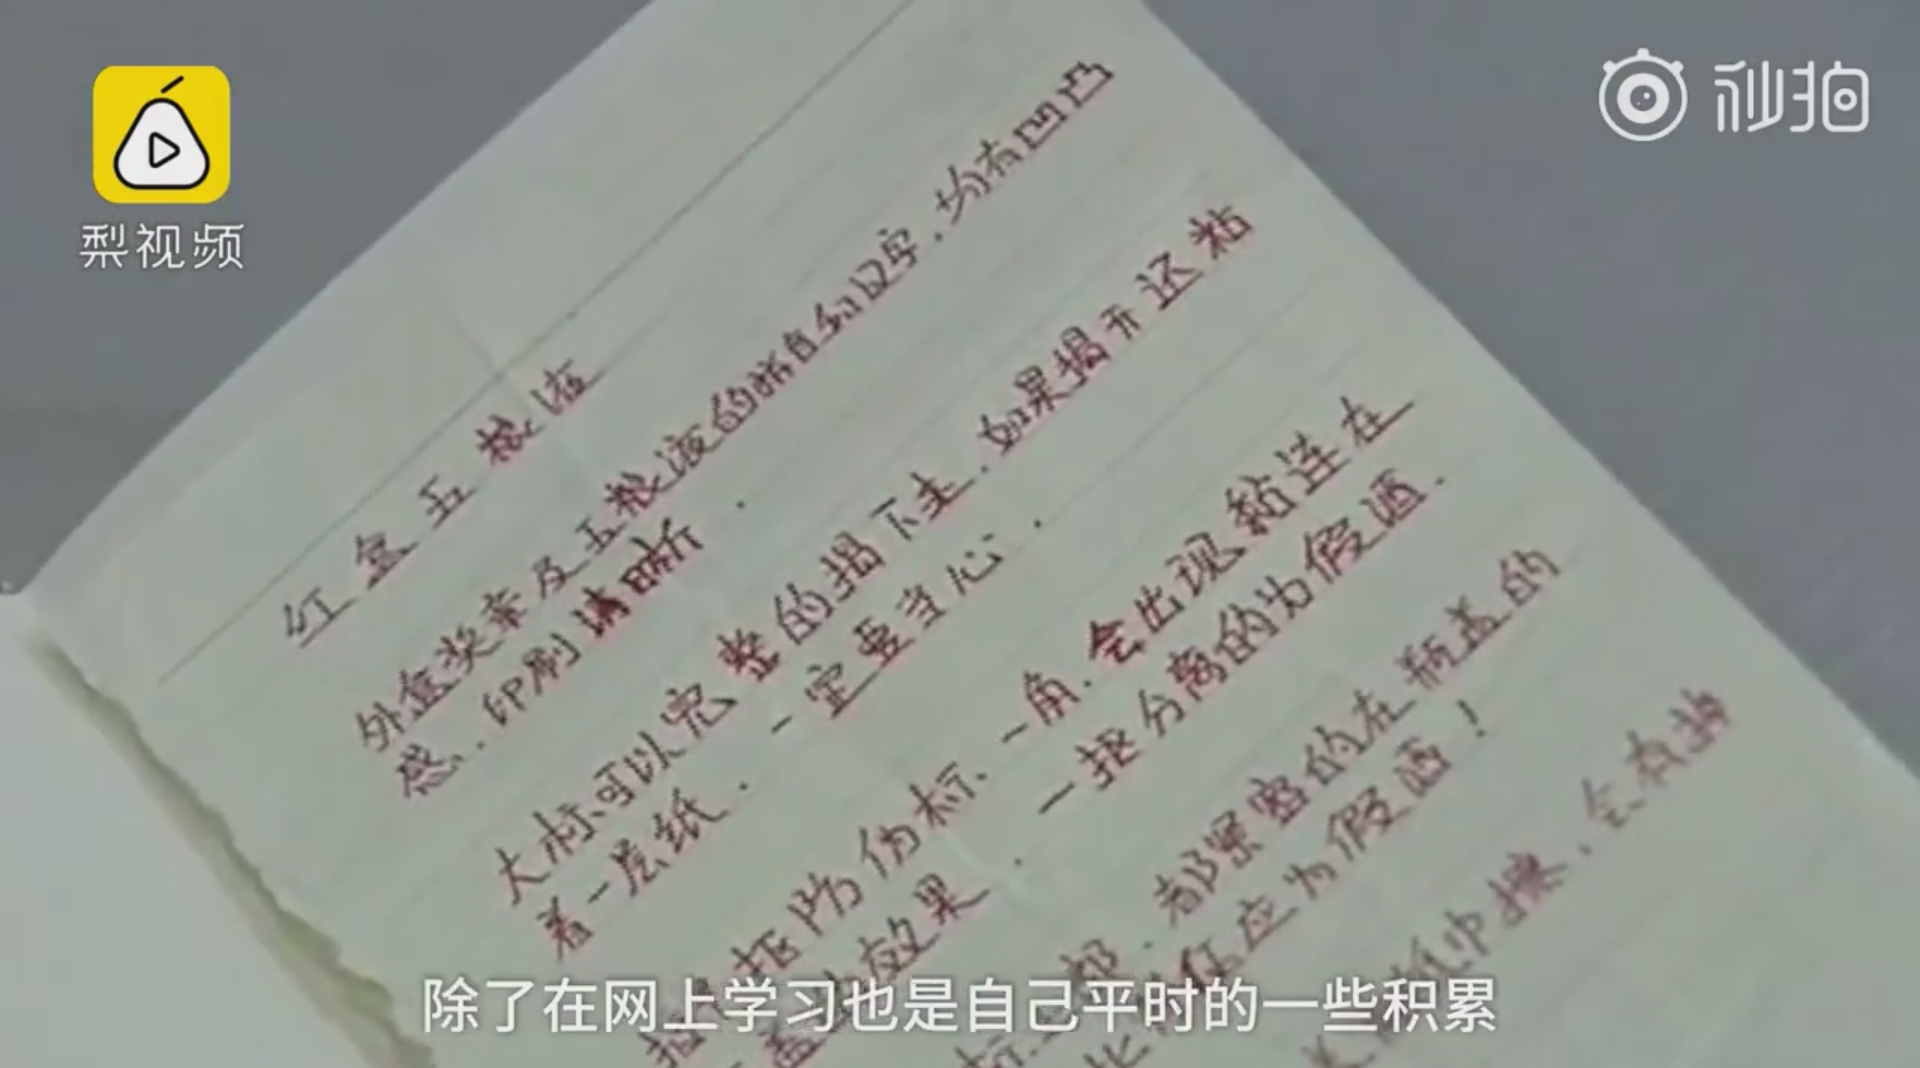 梨视频
秒拍
红盒五粮液
外盒奖章及五粮液的拼音和汉字.均有凹凸
感.印刷清晰.
大标可以完整的揭下来.如果揭开还粘
着一层纸.一定要当心.
抠防伪标、一角.会出现黏连在
效果.一抠分离的为假酒.
都紧密的在瓶盖的
应为假酒!
纸巾擦.会有掉
除了在网上学习也是自己平时的一些积累